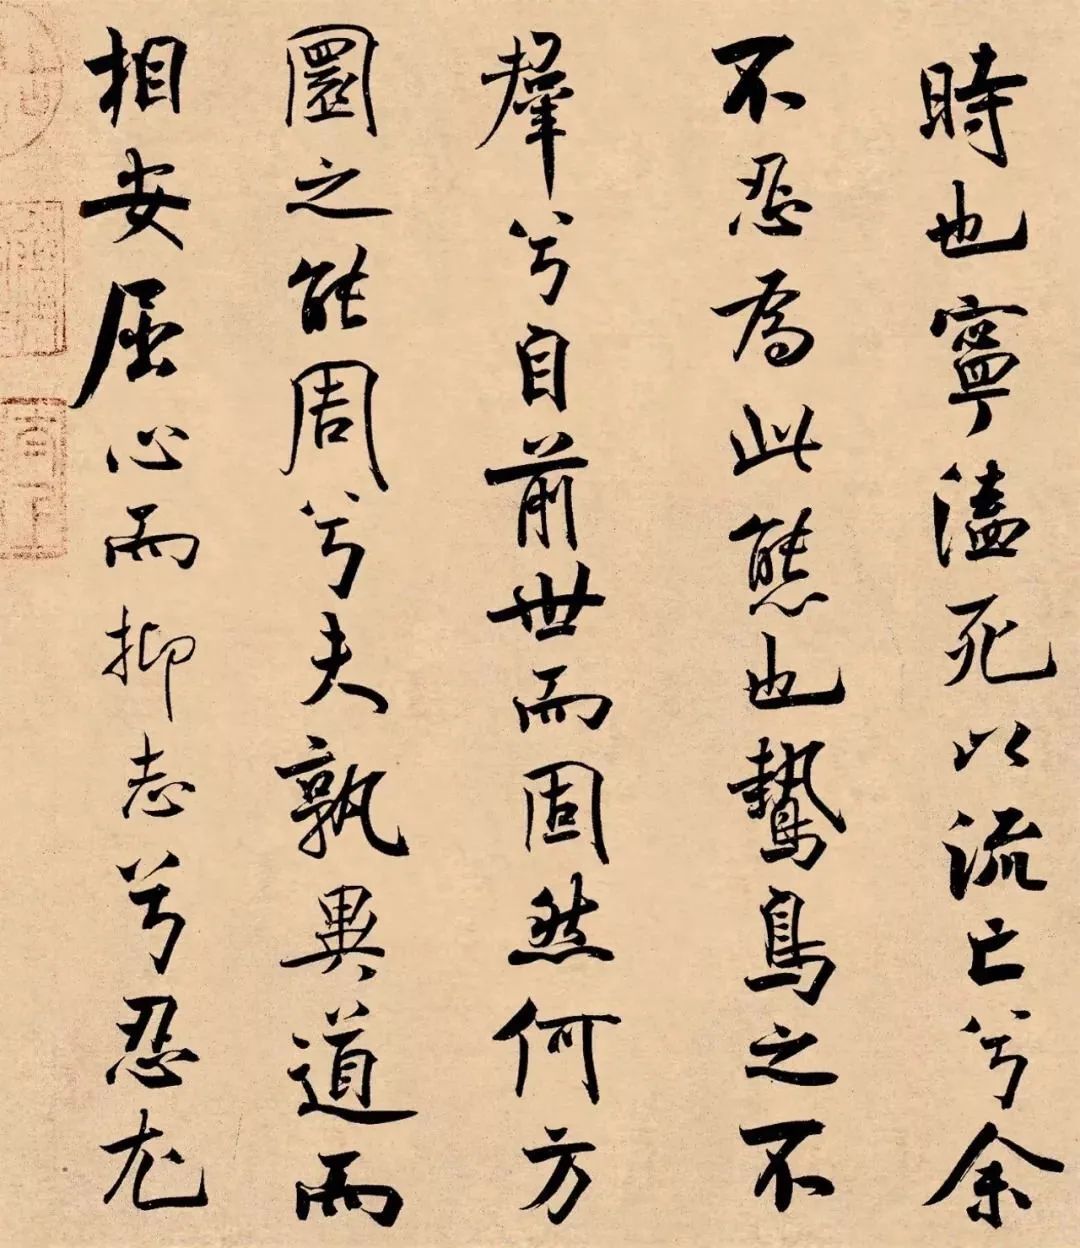 時也寧溘死以流亡兮余
不忍為此態也鷙鳥之不
羣兮自前世而固然何方
圜之能周兮夫孰異道而
相安屈心而抑志兮忍尤